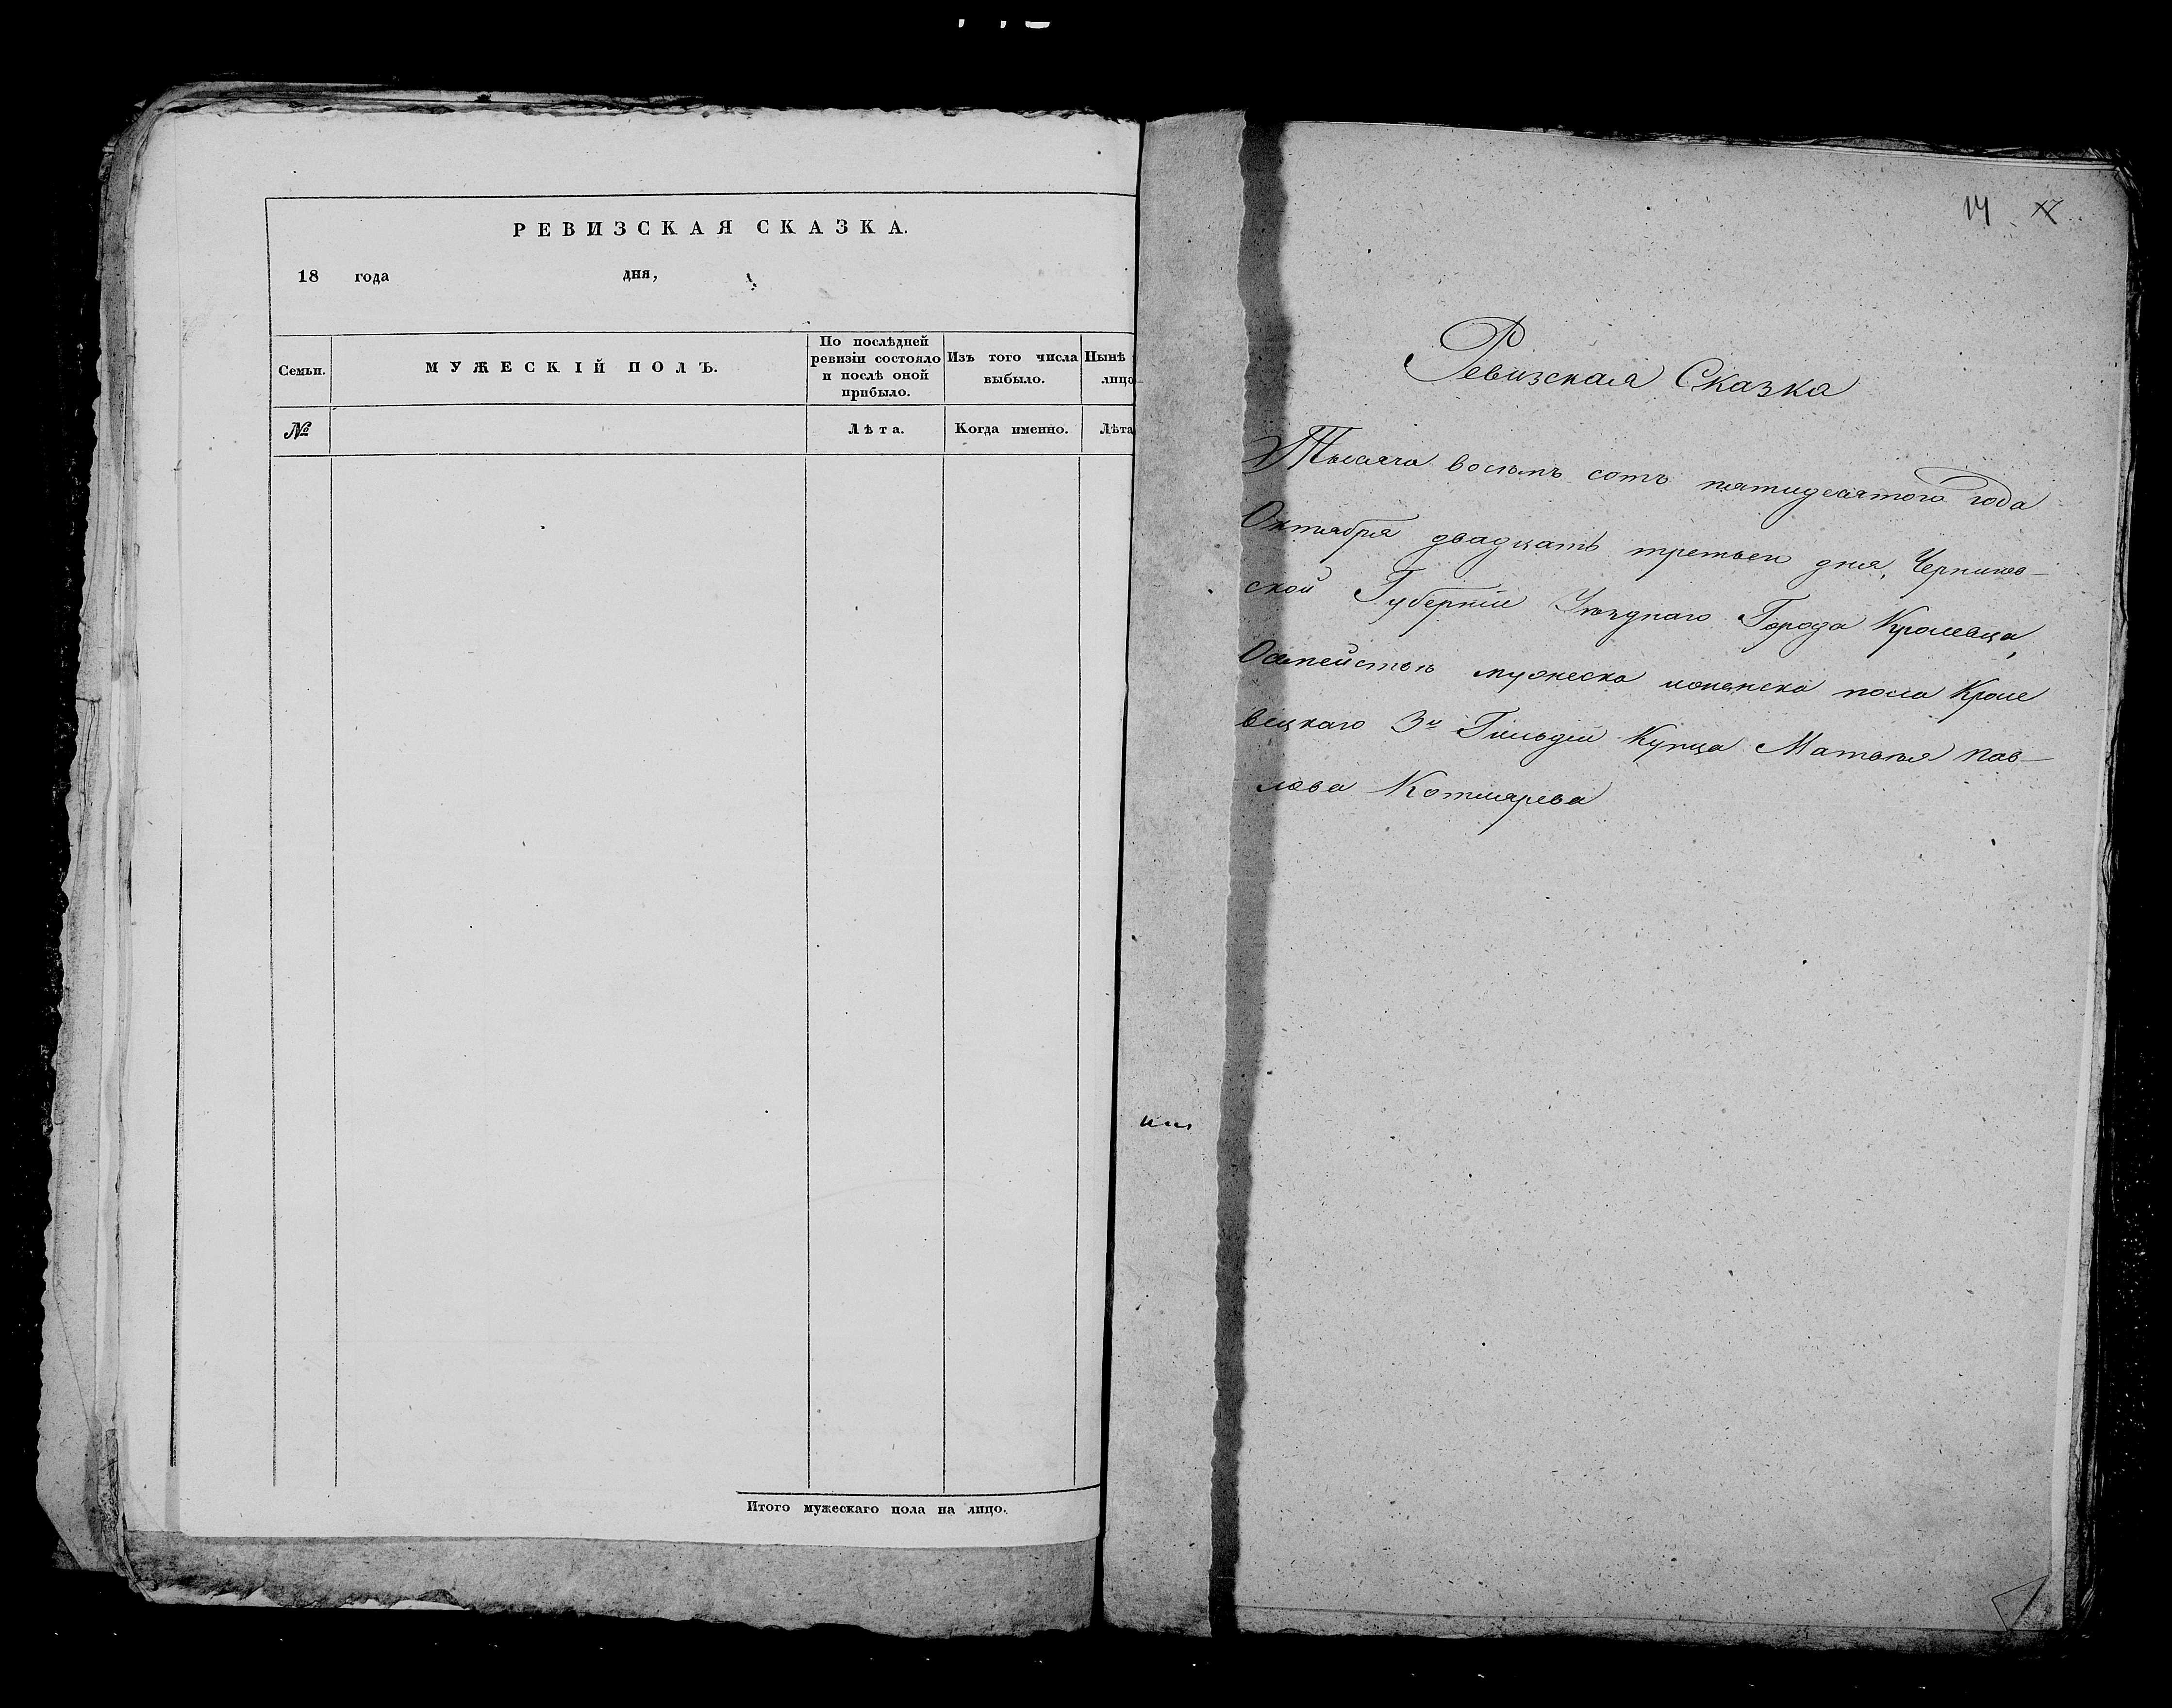 РЕВИЗСКАЯ СКАЗКА.
18 года дня,
Семьи.
МУЖЕСКІЙ ПОЛЪ.
По послѣдней
ревизіи состояло
и послѣ оной
прибыло.
Изъ того числа
выбыло.
Нынѣ
лицо
№
Лѣта.
Когда именно.
Лѣта
Итого мужескаго пола на лицо.
14 17
Ревизская Сказка
Тысяча восемь сотъ пятидесятого года
Октября двадцать третьего дня, Чернигов-
ской Губерніи Уѣзднаго Города Кролевца,
О семействѣ мужеска и женска пола Кроле
вецкаго 3й Гильдіи Купца Матвѣя Пав-
лова Котлярева